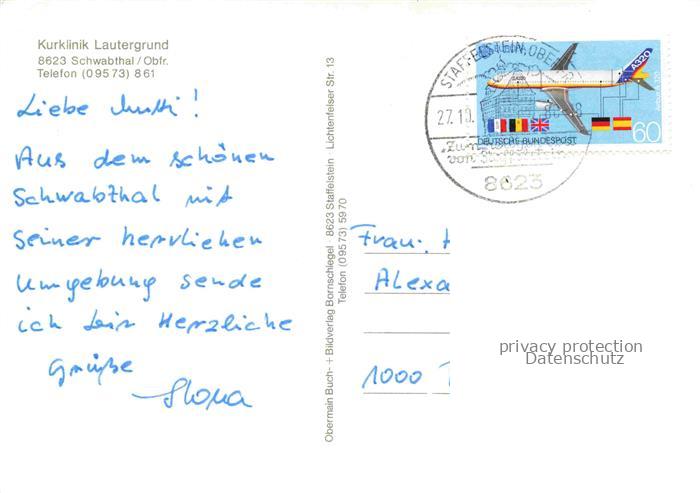 Kurklinik Lautergrund
8623 Schwabthal/Obfr.
Telefon (09573) 861
Liebe Mutti!
Aus dem schönen
Schwabthal mit
seiner herrlichen
Umgebung sende
ich Dir Herzliche
Grüße
Ilona
Obermain Buch- + Bildverlag Bornschlegel 8623 Staffelstein Lichtenfelser Str. 13
Telefon (09573) 5970
STAFFELSTEIN, OBERFR
27.10.
8623
A320
DEUTSCHE BUNDESPOST
60
Frau
Alexa
1000
privacy protection
Datenschutz